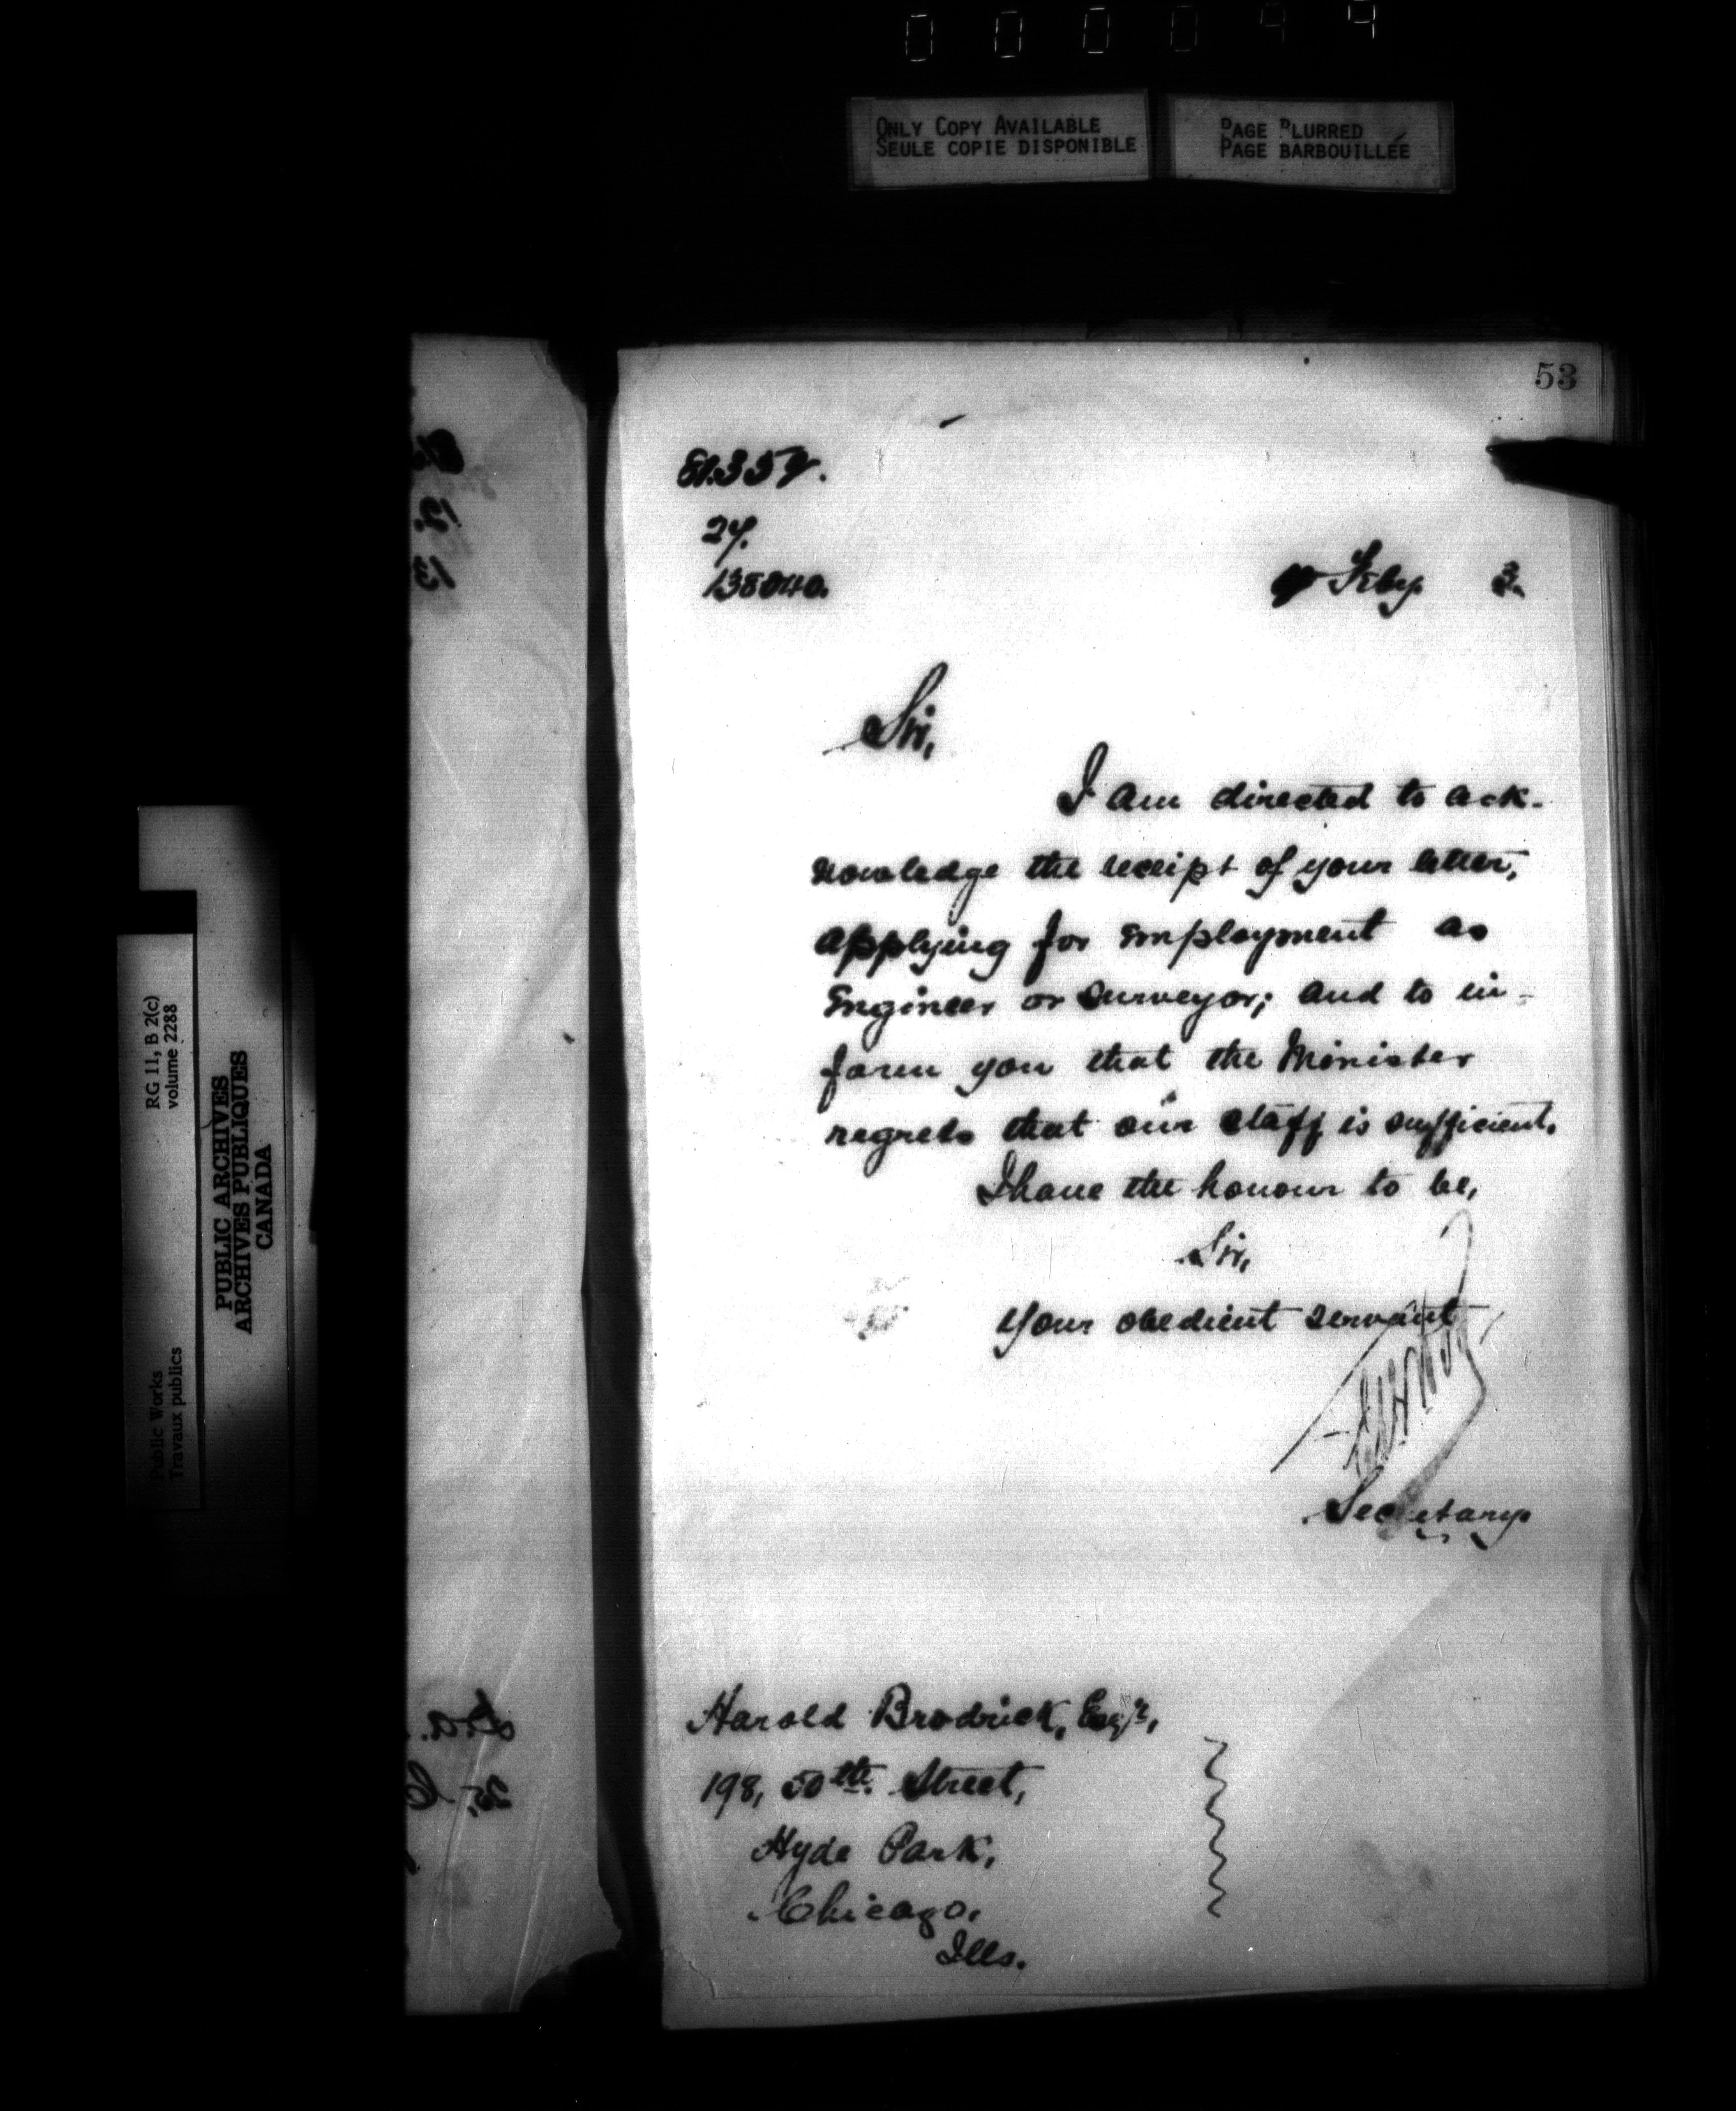 ONLY COPY AVAILABLE
SEULE COPIE DISPONIBLE
PAGE BLURRED
PAGE BARBOUILLÉE
53
27.
138040.
Feby 3.
Sir,
I am directed to ack-
nowledge the receipt of your letter,
applying for employment as
Engineer or Surveyor; and to in-
form you that the Minister
regrets that our staff is sufficient.
I have the honour to be,
Sir,
Your obedient servant
Secretary
Harold Brodrick, Esqr,
198, 50th. Street,
Hyde Park,
Chicago.
Ills.
RG 11, B 2(c)
volume 2288
Public Works
Travaux publics
PUBLIC ARCHIVES
ARCHIVES PUBLIQUES
CANADA